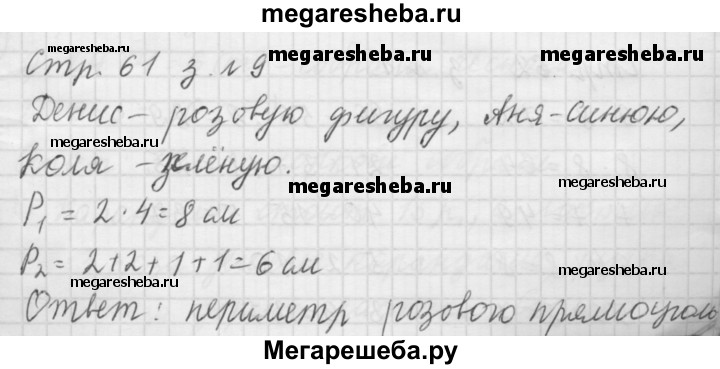 megaresheba.ru
megaresheba.ru
Стр. 61 з. №9 megaresheba.ru megaresheba.ru
Денис – розовую фигуру, Аня – синюю,
megaresheba.ru
Коля – зелёную.
megaresheba.ru
P₁ = 2 · 4 = 8 см
P₂ = 2+2+1+1=6 см
megaresheba.ru megaresheba.ru
Ответ: периметр розового прямоуголь
megaresheba.ru megaresheba.ru
Мегарешеба.ру